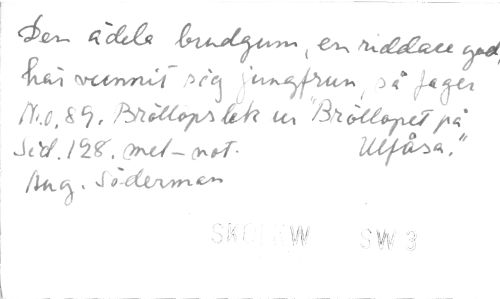 Den ädela brudgum, en riddare god,
har vunnit sig jungfrun, så fager
No. 89. Bröllopslek ur "Bröllopet på
Sid. 128. mel-not. Ulfåsa."
Aug. Söderman
SW 3